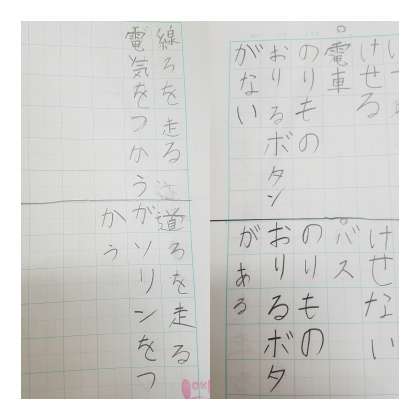 線ろを走る
電気をつかう
道ろを走る
がソリンをつ
かう
けせる
○電車
のりもの
おりるボタン
がない
けせない
○バス
のりもの
おりるボタ
がある